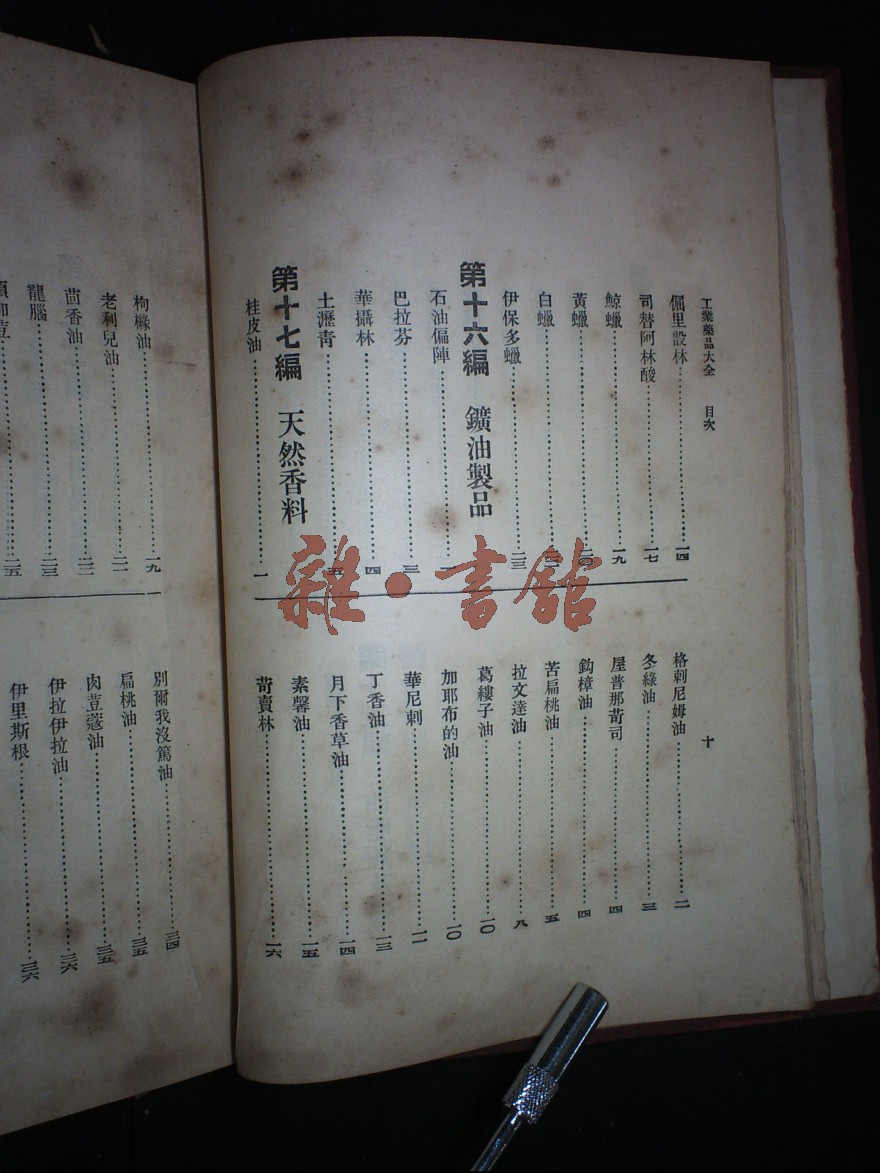 工業藥品大全 目次
十
佩里設林 一四
司替阿林酸 一七
鯨蠟 一九
黃蠟 二〇
白蠟
伊保多蠟 二三
第十六編 鑛油製品
石油偏陣 一
巴拉芬 三
華攝林 四
土瀝青 五
第十七編 天然香料
桂皮油 一
格剌尼姆油 二
冬綠油 三
屋普那苛司 四
鈎樟油 四
苦扁桃油 五
拉文達油 八
葛縷子油 一〇
加耶布的油 一〇
華尼剌 一一
丁香油 一三
月下香草油 一四
素馨油 一五
苛賣林 一六
枸櫞油 一九
老利兒油 二一
茴香油 二二
龍腦 二三
二五
別爾我沒篤油 三四
扁桃油 三五
肉荳蔻油 三五
伊拉伊拉油 三六
伊里斯根 三六
雜·書館